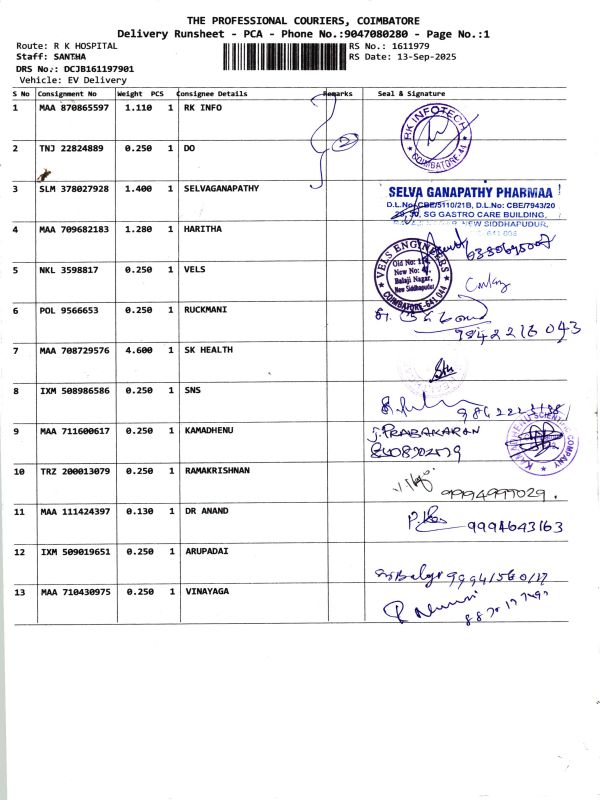 THE PROFESSIONAL COURIERS, COIMBATORE
Delivery Runsheet - PCA - Phone No.:9047080280 - Page No.:1
Route: R K HOSPITAL
RS No.: 1611979
Staff: SANTHA
RS Date: 13-Sep-2025
DRS No.: DCJB161197901
Vehicle: EV Delivery
S No Consignment No Weight PCS Consignee Details Remarks Seal & Signature
1 MAA 870865597 1.110 1 RK INFO
RK INFOTECH
COIMBATORE-44
2
2 TNJ 22824889 0.250 1 DO
3 SLM 378027928 1.400 1 SELVAGANAPATHY
SELVA GANAPATHY PHARMAA
D.L.No: CBE/5110/21B, D.L.No: CBE/7943/20
SG GASTRO CARE BUILDING,
NEW SIDDHAPUDUR,
4 MAA 709682183 1.280 1 HARITHA
5 NKL 3598817 0.250 1 VELS
VELS ENGINEERS
Balaji Nagar,
New Siddhapudur
COIMBATORE-641 044
6 POL 9566653 0.250 1 RUCKMANI
7 MAA 708729576 4.600 1 SK HEALTH
8 IXM 508986586 0.250 1 SNS
9 MAA 711600617 0.250 1 KAMADHENU
J. PRABAKARAN
10 TRZ 200013079 0.250 1 RAMAKRISHNAN
9994997029.
11 MAA 111424397 0.130 1 DR ANAND
9994643163
12 IXM 509019651 0.250 1 ARUPADAI
13 MAA 710430975 0.250 1 VINAYAGA